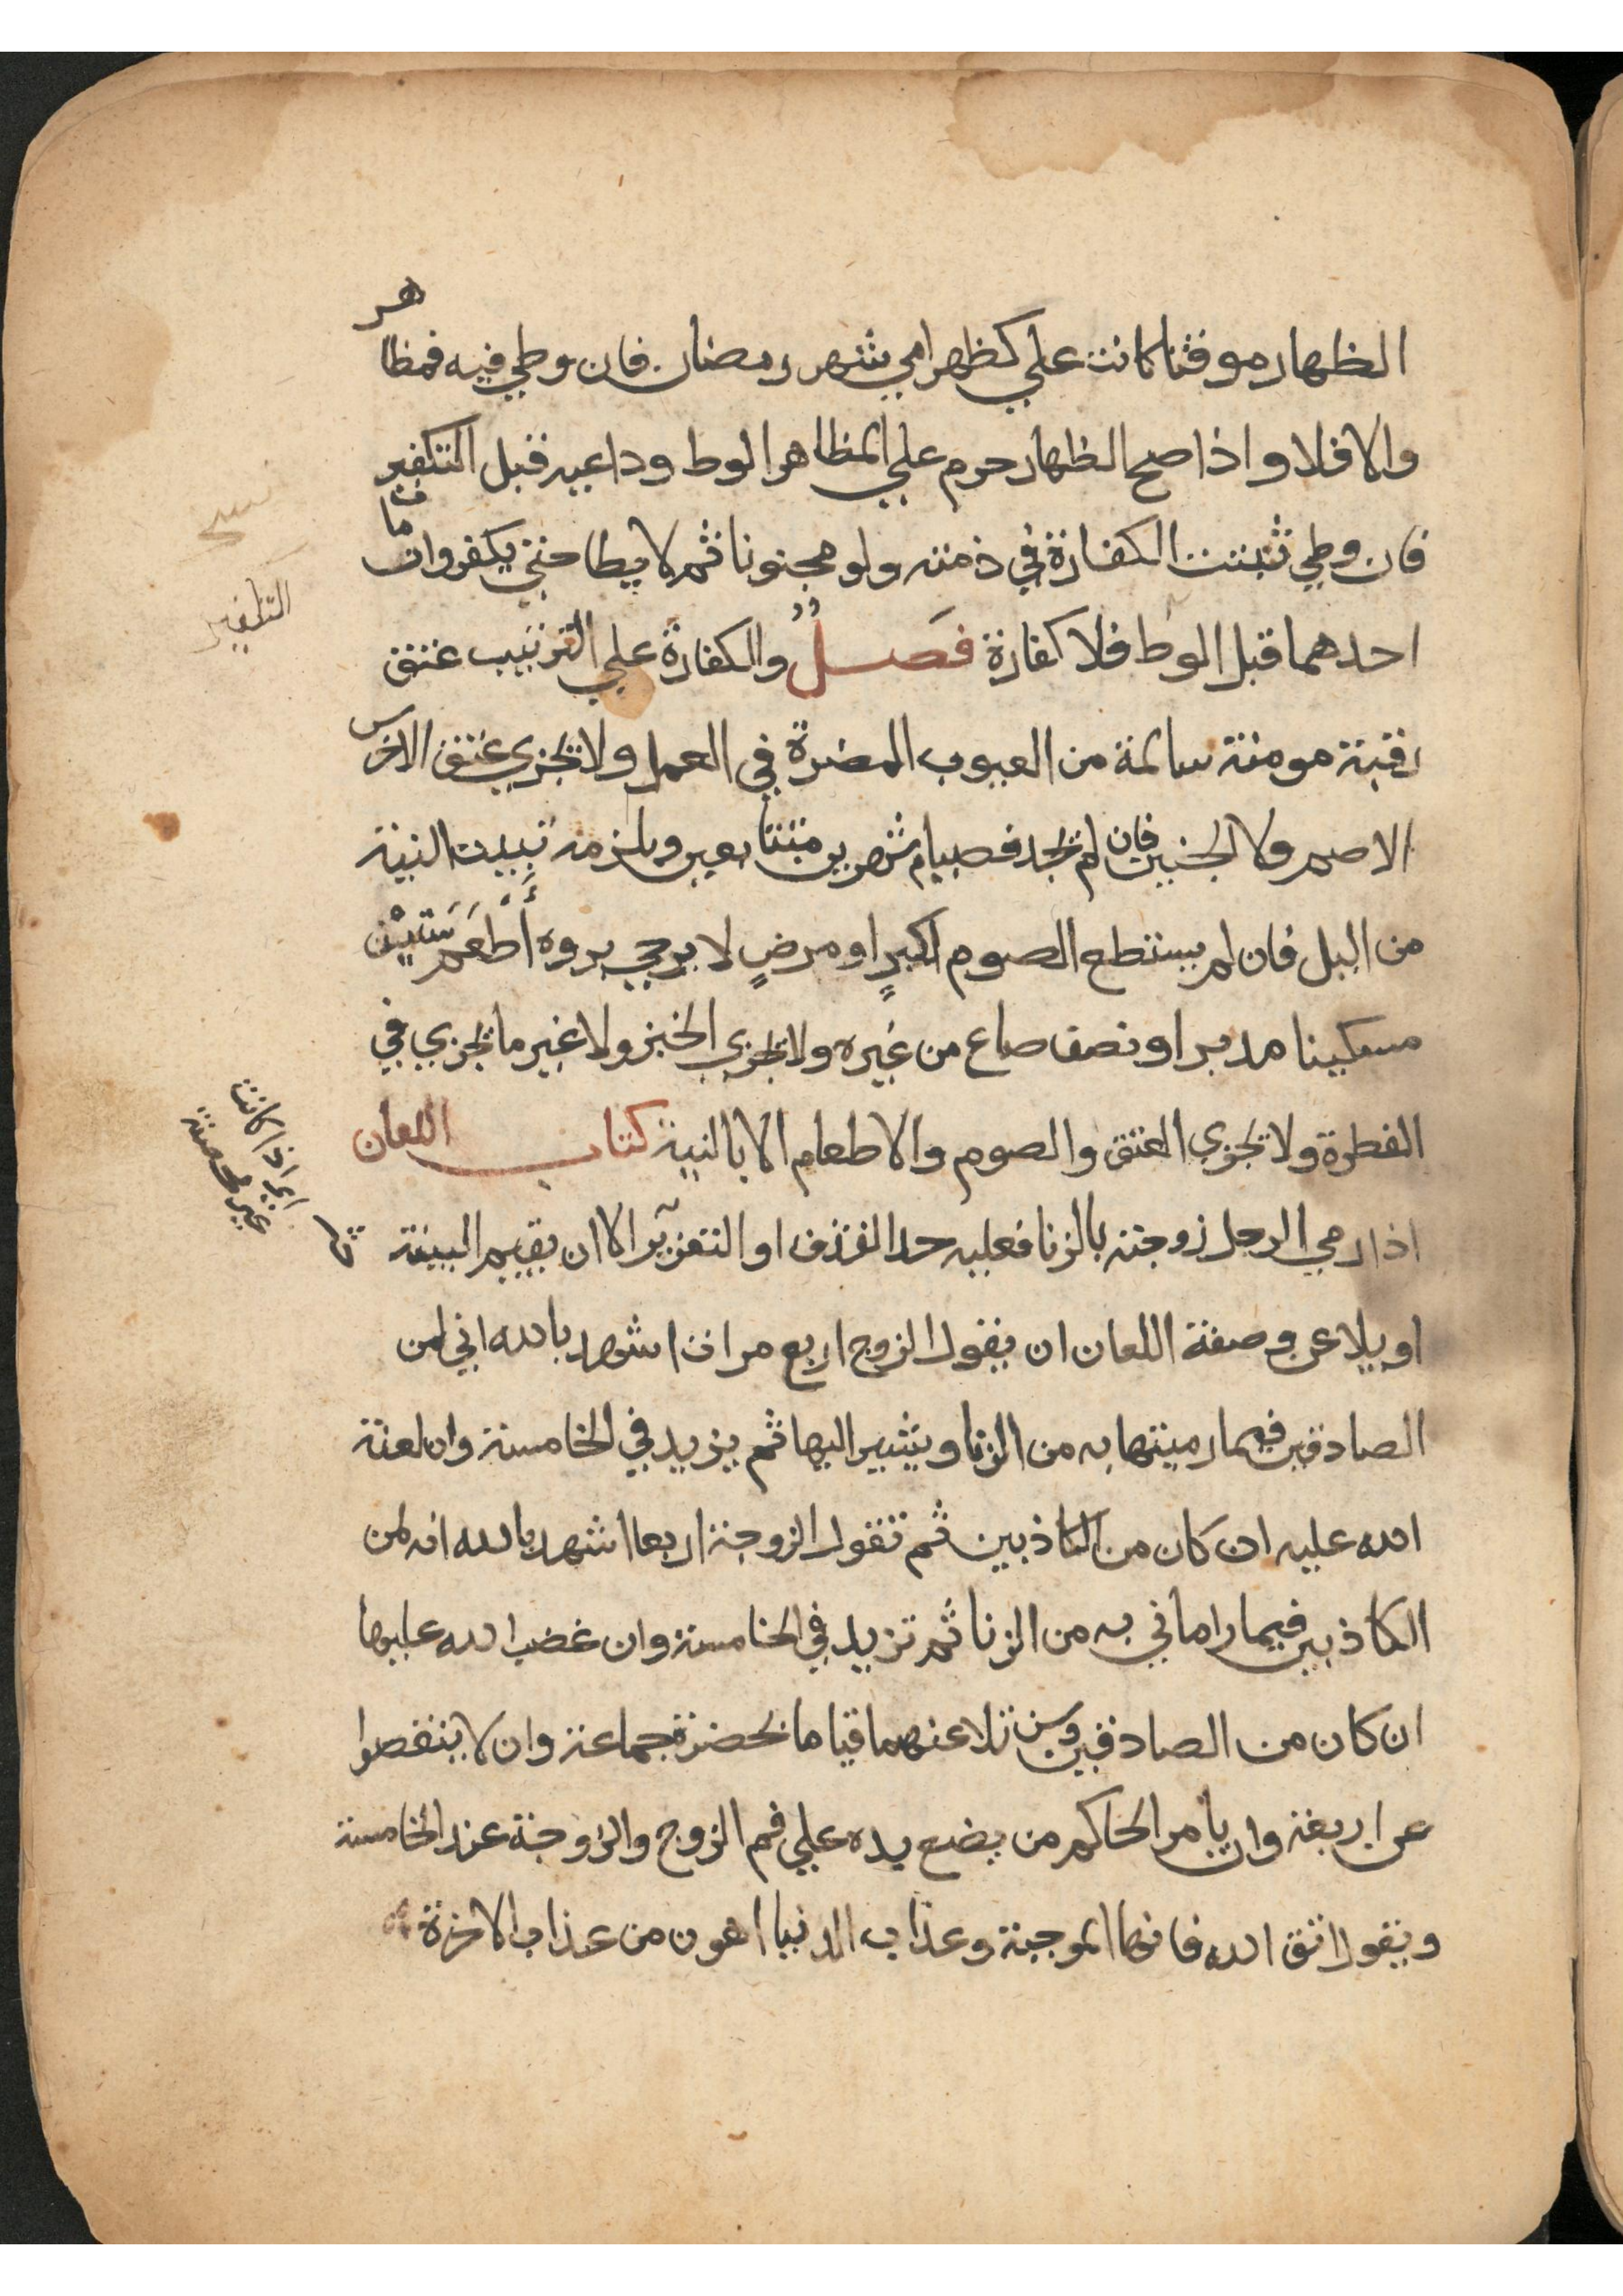 الظهار موقتا كانت علي كظهر امي شهر رمضان فان وطي فيه فمظاهر
والا فلا واذا صح الظهار حرم علي المظاهر الوط ودواعيه قبل التكفير
فان وطي ثبتت الكفارة في ذمته ولو مجنونا ثم لا يطا حتي يكفر وان مات
احدهما قبل الوط فلا كفارة فصل والكفارة علي الترتيب عتق
رقبة مومنة سالمة من العيوب المضرة في العمل ولا تجزي عتق الاخرس
الاصم ولا الجنين فان لم تجد فصيام شهرين متتابعين ويلزمه تبييت النية
من اليل فان لم يستطع الصوم لكبرٍ او مرضٍ لا يرجي بروه أَطْعَم سَتِيْن
مسكينا مد بر او نصف صاع من غيره ولا تجزي الخبز ولا غير ما تجزي في
الفطرة ولا تجزي العتق والصوم والاطعام الا بالنية كتاب اللعان
اذا رمي الرجل زوجته بالزنا فعليه حد القذف او التعزير الا ان يقيم البينة
او يلاعن وصفة اللعان ان يقول الزوج اربع مرات اشهد بالله اني لمن
الصادقين فيما رميتها به من الزنا ويشير اليها ثم يزيد في الخامسة وان لعنة
الله عليه ان كان من الكاذبين ثم تقول الزوجة اربعا اشهد بالله انه لمن
الكاذبين فيما راماني به من الزنا ثم تزيد في الخامسة وان غضب الله عليها
ان كان من الصادقين وسن تلاعنهما قياما بحضرة جماعة وان لا ينقصوا
عن اربعة وان يامر الحاكم من يضع يده علي فم الزوج والزوجة عند الخامسة
ويقول اتق الله فانها الموجبة وعذاب الدنيا اهون من عذاب الاخرة
التكفير
اي اذا كانت
غير محصنة